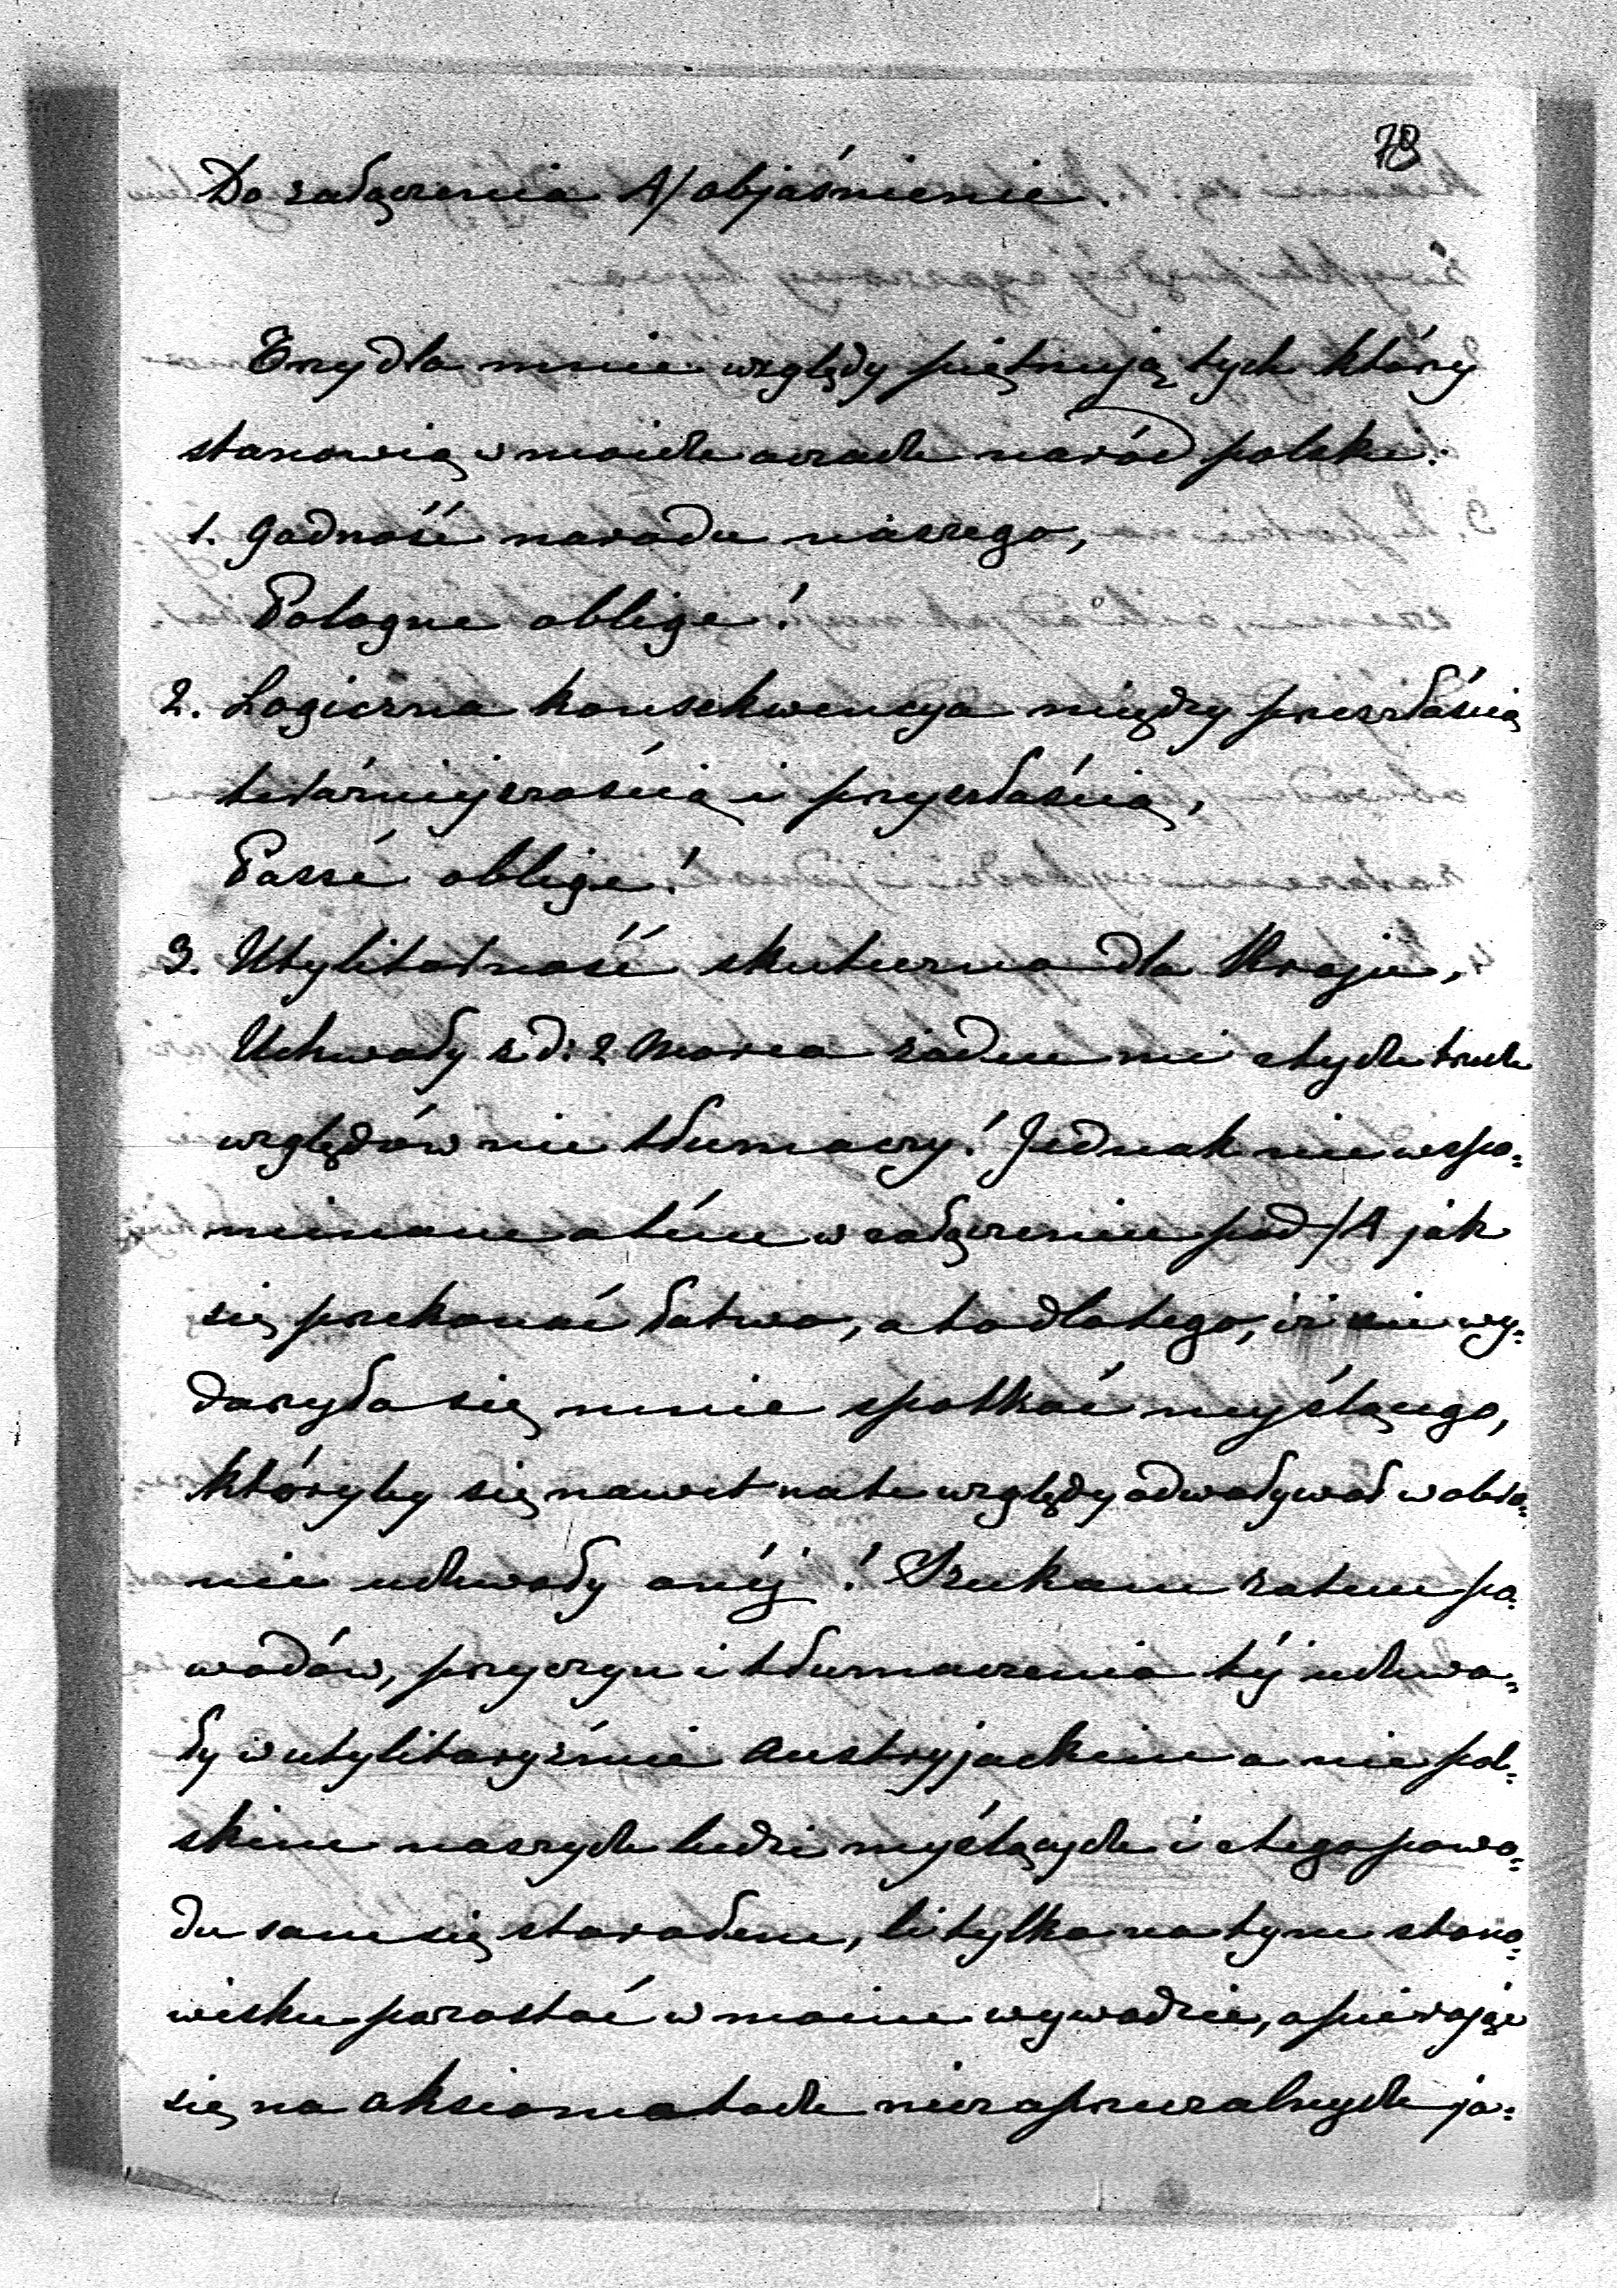 78
Do załączenia A/ objaśnienie.
Trzy dla mnie względy piętnują tych którzy
stanowią w moich oczach naród polski:
1. godność narodu naszego,
Pologne oblige!
2. Logiczna konsekwencya między przeszłością
teraźniejszością i przyszłością,
Passé oblige!
3. Utylitarność skuteczna dla Kraju,
Uchwały z d: 2 Marca żaden mi z tych trzech
względów nie tłumaczy! Jednak nie wspo=
minam o tém w załączeniu pod /A jak
się przekonać łatwo, a to dlatego, iż nie wy=
darzyło się mnie spotkać myślącego,
któryby się nawet na te względy odwoływał w obro=
nie uchwały onéj! Szukam zatem po=
wodów, przyczyn i tłumaczenia téj uchwa=
ły w utylitaryźmie Austryjackim a nie pol=
skim naszych ludzi myślących i z tego powo=
du sam się starałem, li tylko na tym stano=
wisku pozostać w moim wywodzie, opierając
się na aksiomatach niezaprzeczalnych ja=